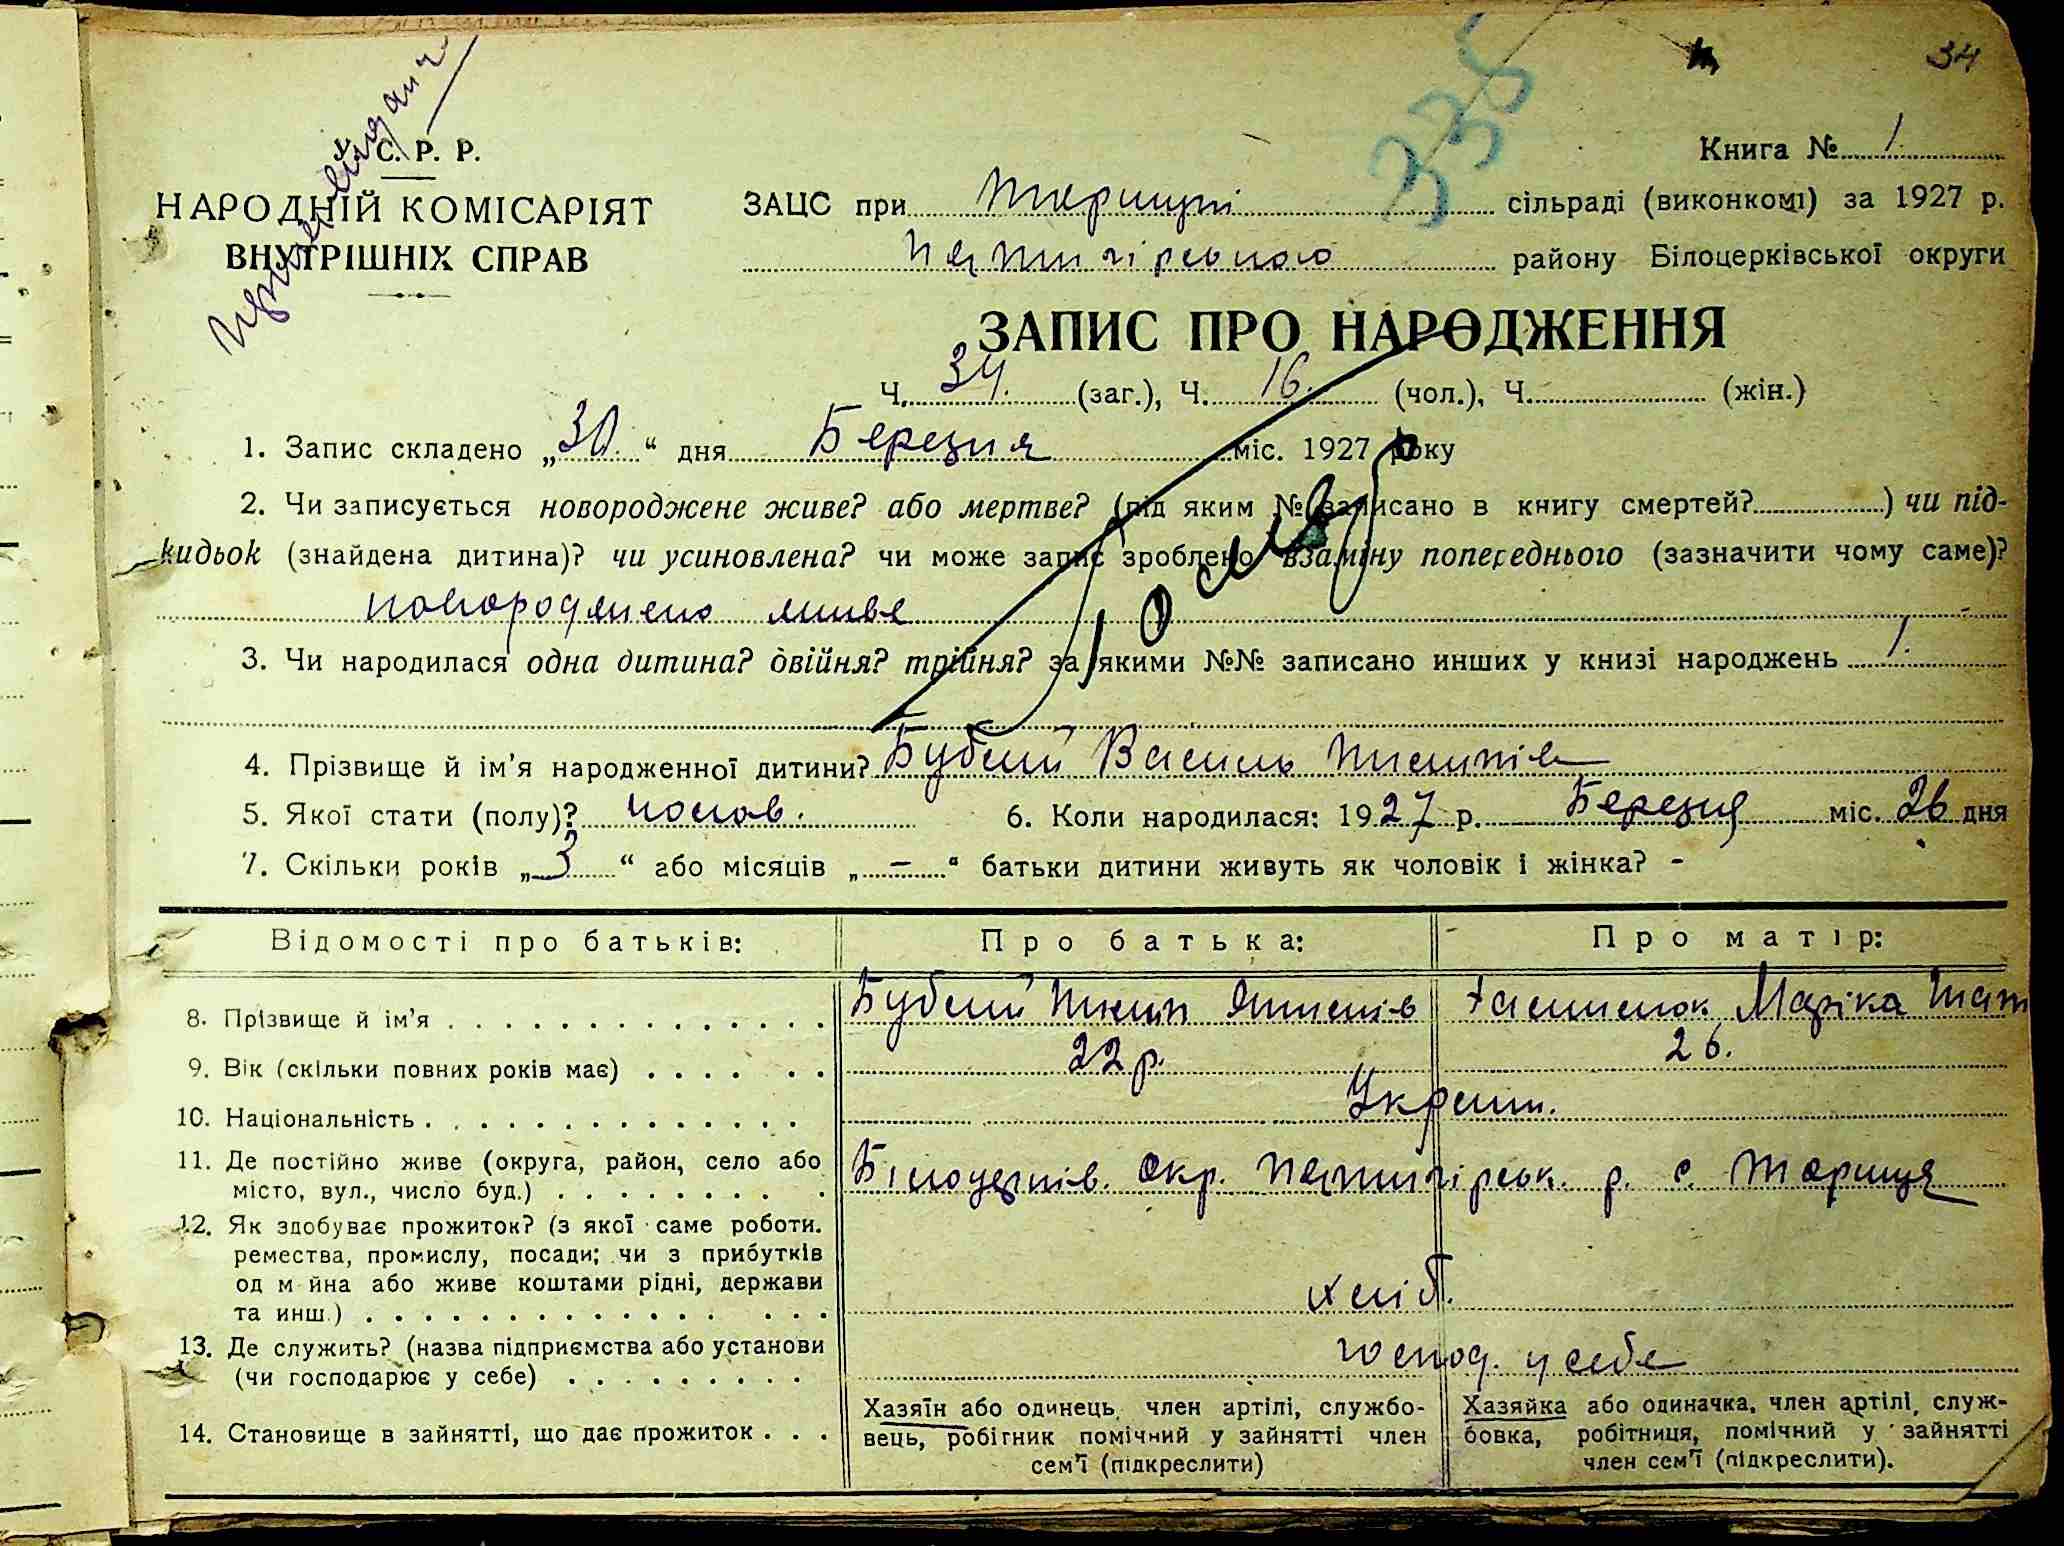 34
335
У. С. Р. Р.
НАРОДНІЙ КОМІСАРІЯТ
ВНУТРІШНІХ СПРАВ
Книга № 1.
ЗАЦС при Тариці сільраді (виконкомі) за 1927 р.
Пятигірського району Білоцерківської округи
ЗАПИС ПРО НАРОДЖЕННЯ
Ч. 34. (заг.), Ч. 16. (чол.), Ч. (жін.)
1. Запис складено „30.“ дня Березня міс. 1927 року
2. Чи записується новороджене живе? або мертве? (під яким № записано в книгу смертей? ) чи під-
кидьок (знайдена дитина)? чи усиновлена? чи може запис зроблено взаміну попереднього (зазначити чому саме)?
новороджено живе
3. Чи народилася одна дитина? двійня? трійня? за якими №№ записано инших у книзі народжень 1.
4. Прізвище й ім'я народженної дитини? Бублий Василь
5. Якої стати (полу)? чолов. 6. Коли народилася: 1927 р. Березня міс. 26 дня
7. Скільки років „3“ або місяців „–“ батьки дитини живуть як чоловік і жінка? -
Відомості про батьків: Про батька: Про матір:
8. Прізвище й ім'я Бублий Маріка
9. Вік (скільки повних років має) 22 р. 26.
10. Національність Україн.
11. Де постійно живе (округа, район, село або
місто, вул., число буд.) Білоцерків. окр. Пятигірськ. р. с. Тариця
12. Як здобуває прожиток? (з якої саме роботи.
ремества, промислу, посади; чи з прибутків
од м йна або живе коштами рідні, держави
та инш.) хліб.
13. Де служить? (назва підприємства або установи
(чи господарює у себе) господ. у себе
14. Становище в зайнятті, що дає прожиток
Хазяїн або одинець, член артілі, службо-
вець, робітник помічний у зайнятті член
сем'ї (підкреслити)
Хазяйка або одиначка, член артілі, служ-
бовка, робітниця, помічний у зайнятті
член сем'ї (підкреслити).